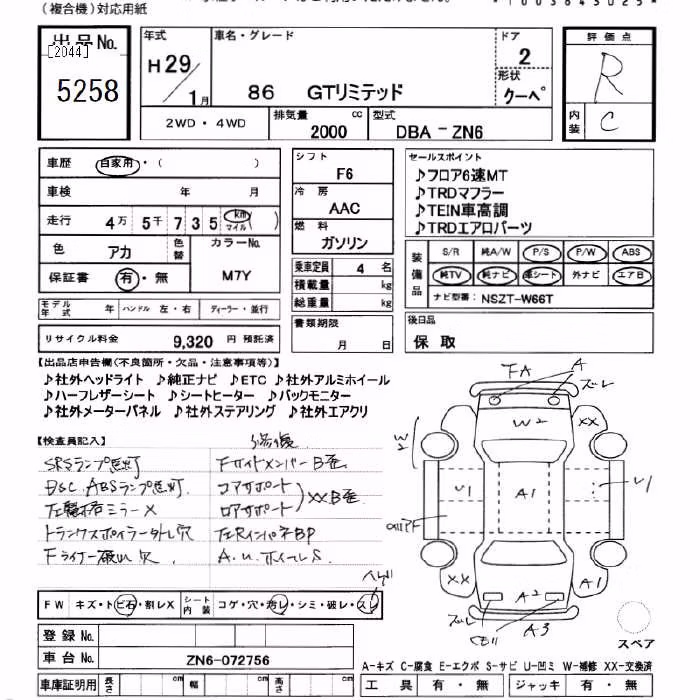 (複合機)対応用紙
出品No.
[2044]
5258
年式
H29/1月
車名・グレード
86 GTリミテッド
ドア
2
形状
クーペ
評価点
R
内装
C
2WD・4WD
排気量
2000 cc
型式
DBA-ZN6
車歴 自家用・( )
車検 年 月
走行 4万 5千 7 3 5 km マイル ( )
色 アカ 色替 カラーNo. M7Y
保証書 有・無
モデル年式 年 ハンドル 左・右 ディーラー・並行
リサイクル料金 9,320 円 預託済
シフト
F6
冷房
AAC
燃料
ガソリン
乗車定員 4 名
積載量 kg
総重量 kg
書類期限
月 日
セールスポイント
♪フロア6速MT
♪TRDマフラー
♪TEIN車高調
♪TRDエアロパーツ
装備品
S/R 純A/W P/S P/W ABS
純TV 純ナビ 革シート 外ナビ エアB
ナビ型番: NSZT-W66T
後日品
保 取
【出品店申告欄(不良箇所・欠品・注意事項等)】
♪社外ヘッドライト ♪純正ナビ ♪ETC ♪社外アルミホイール
♪ハーフレザーシート ♪シートヒーター ♪バックモニター
♪社外メーターパネル ♪社外ステアリング ♪社外エアクリ
【検査員記入】
修復
SRSランプ点灯 FサイドメンバーB歪
DSC.ABSランプ点灯. コアサポート
ロアサポート
XXB歪
トランクスポイラー外し穴 左RインパネBP
Fライナー破れ穴 A.U.ホイールS
FA
A
ズレ
W2
XX
W2
U1
A1
U1
XX
A2
A1
ズレ
A3
スペア
FW キズ・トビ石・割レX シート内装 コゲ・穴・汚レ・シミ・破レ・スレ
登録No.
車台No. ZN6-072756
車庫証明用 長さ cm 幅 cm 高さ cm
A-キズ C-腐食 E-エクボ S-サビ U-凹ミ W-補修 XX-交換済
工具 有・無 ジャッキ 有・無